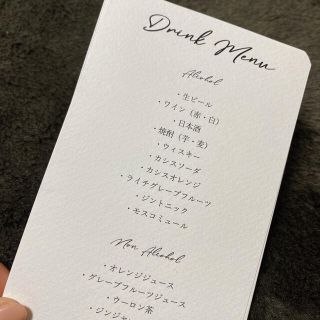 Drink Menu
Alcohol
・生ビール
・ワイン（赤・白）
・日本酒
・焼酎（芋・麦）
・ウィスキー
・カシスソーダ
・カシスオレンジ
・ライチグレープフルーツ
・ジントニック
・モスコミュール
Non Alcohol
・オレンジジュース
・グレープフルーツジュース
・ウーロン茶